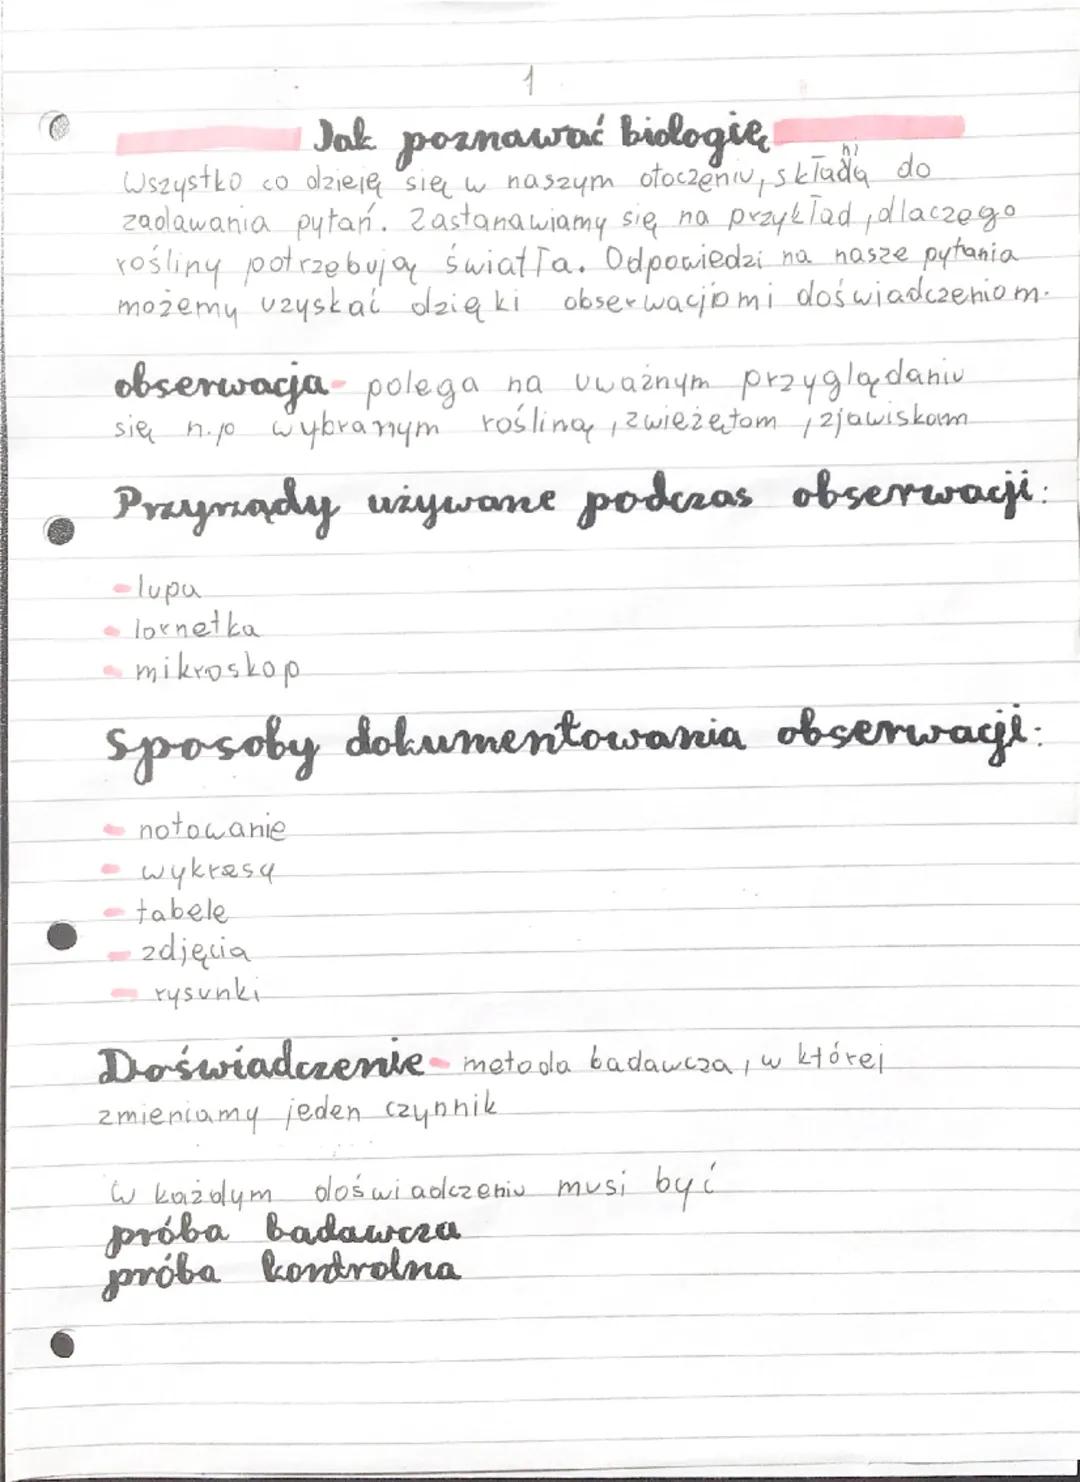 1
Jak poznawać biologię
Wszystko co dzieję się w naszym otoczeniu, składa do
ni
zadawania pytań. Zastanawiamy się na przykład, dlaczego
rośliny potrzebują światła. Odpowiedzi na nasze pytania
możemy uzyskać dzięki obserwacjom i doświadczeniom.
obserwacja - polega na uważnym przyglądaniu
się n.p wybranym rośliną, zwieżętom, zjawiskom
Przyrządy używane podczas obserwacji:
- lupa
- lornetka
- mikroskop
Sposoby dokumentowania obserwacji:
- notowanie
- wykresy
- tabele
- zdjęcia
- rysunki
Doświadczenie - metoda badawcza, w której
zmieniamy jeden czynnik
W każdym doświadczeniu musi być
próba badawcza
próba kontrolna